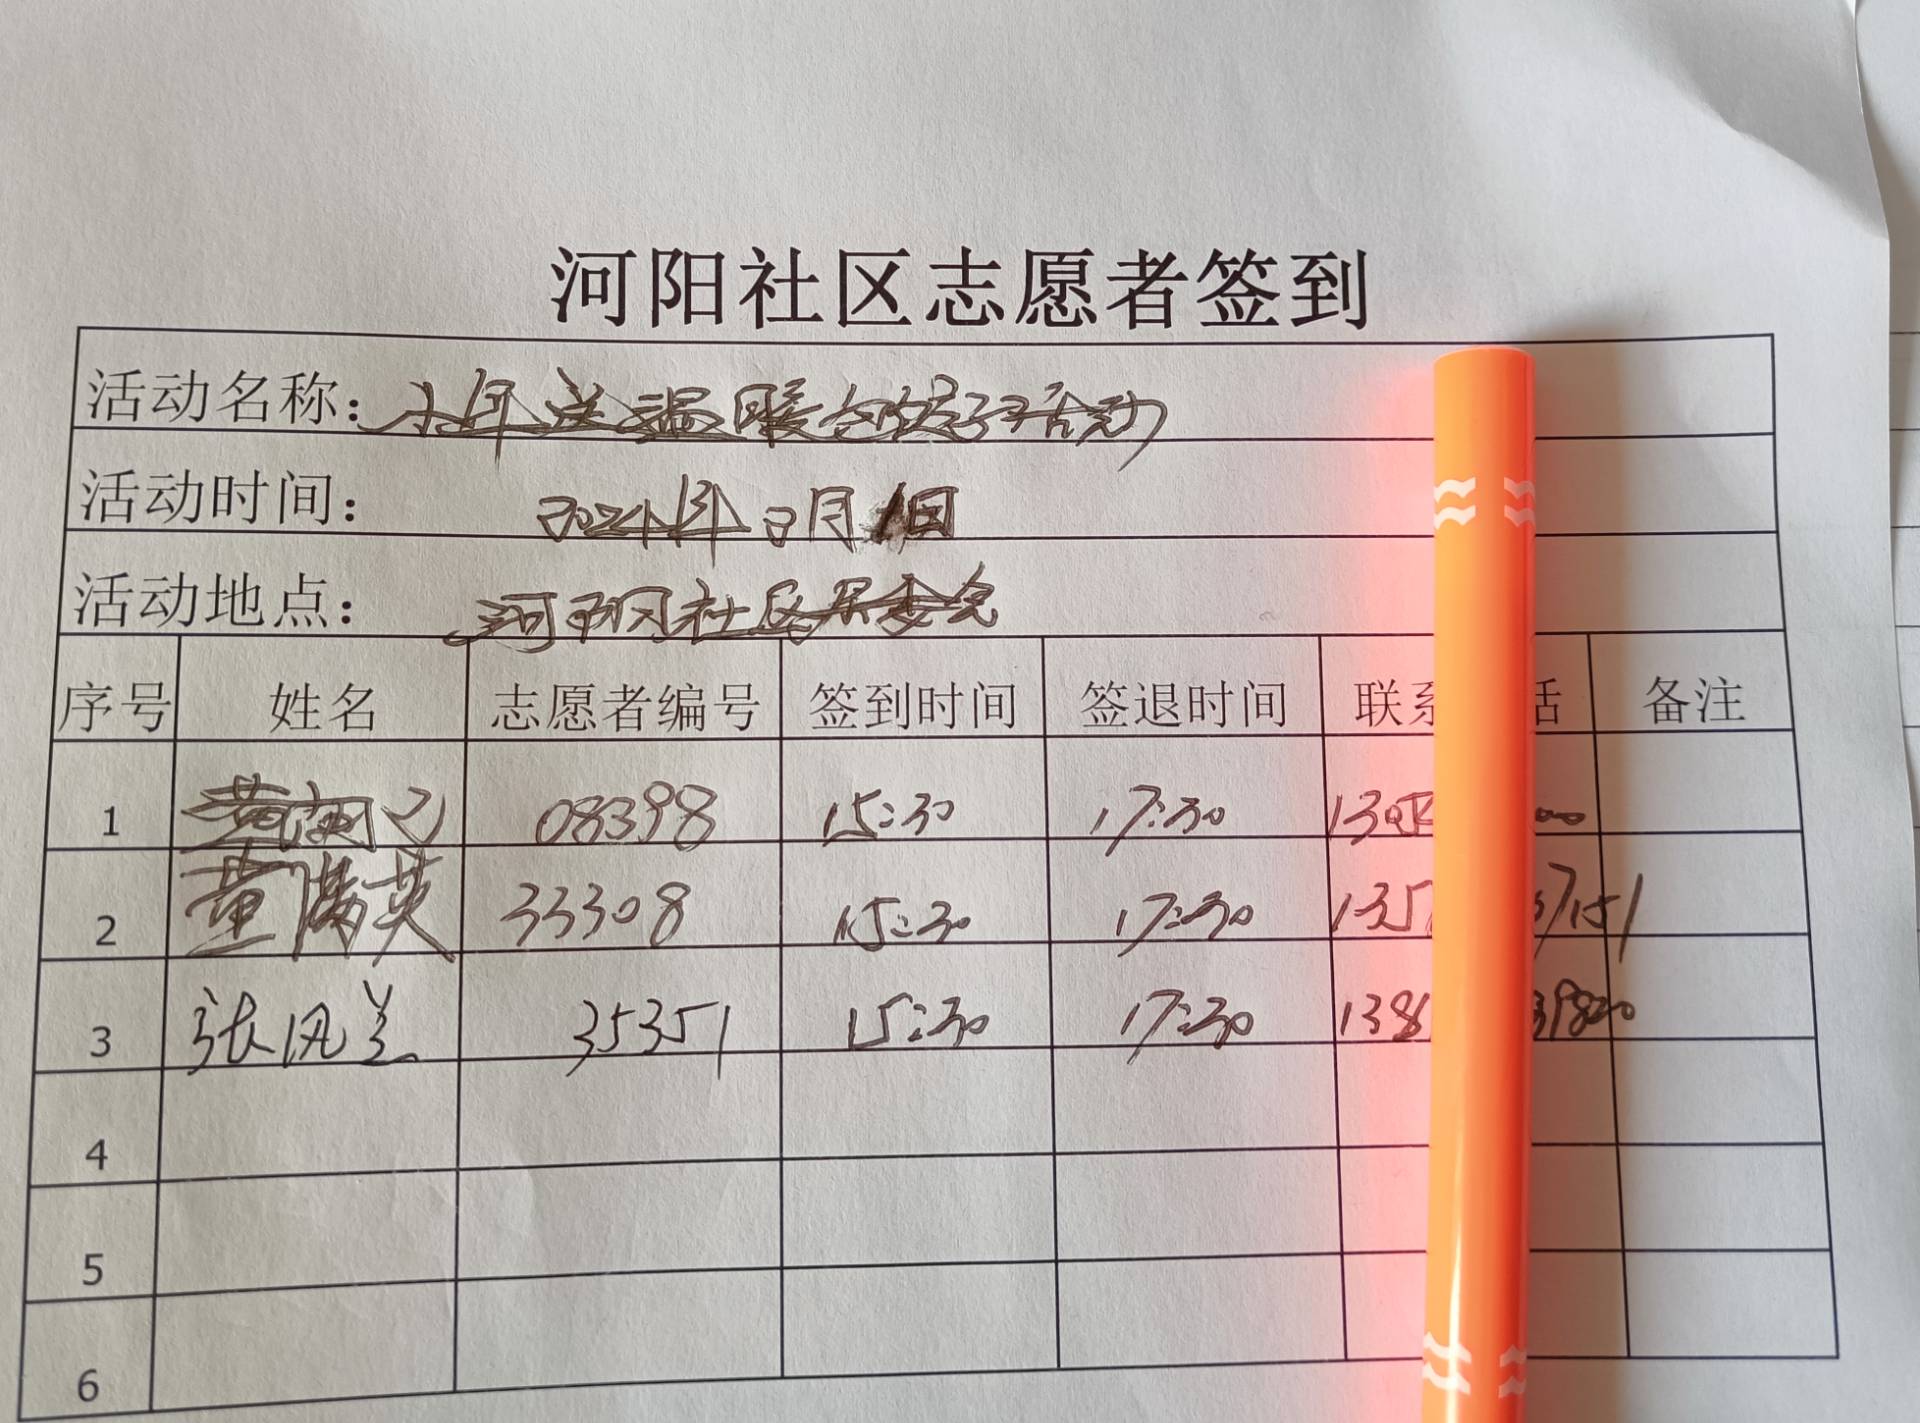 河阳社区志愿者签到
活动名称：小年送温暖包饺子活动
活动时间：2024年2月1日
活动地点：河阳社区居委会
序号 姓名 志愿者编号 签到时间 签退时间 联系 话 备注
1 08398 15:30 17:30
2 董满英 33308 15:30 17:30 135 7151
3 张凤兰 35351 15:30 17:30 138 39820
4
5
6